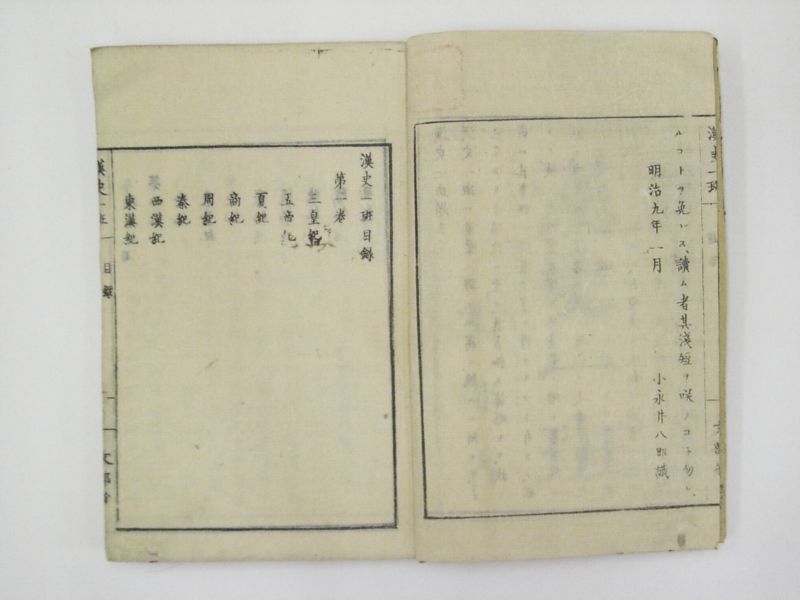 ルコトヲ免レス、讀ム者其淺短ヲ咲フコト勿レ、
明治九年一月　小永井八郎識
漢史一班
漢史一班目錄
第一卷
三皇紀
五帝紀
夏紀
商紀
周紀
秦紀
西漢紀
東漢紀
漢史一班
目錄
一
文部省